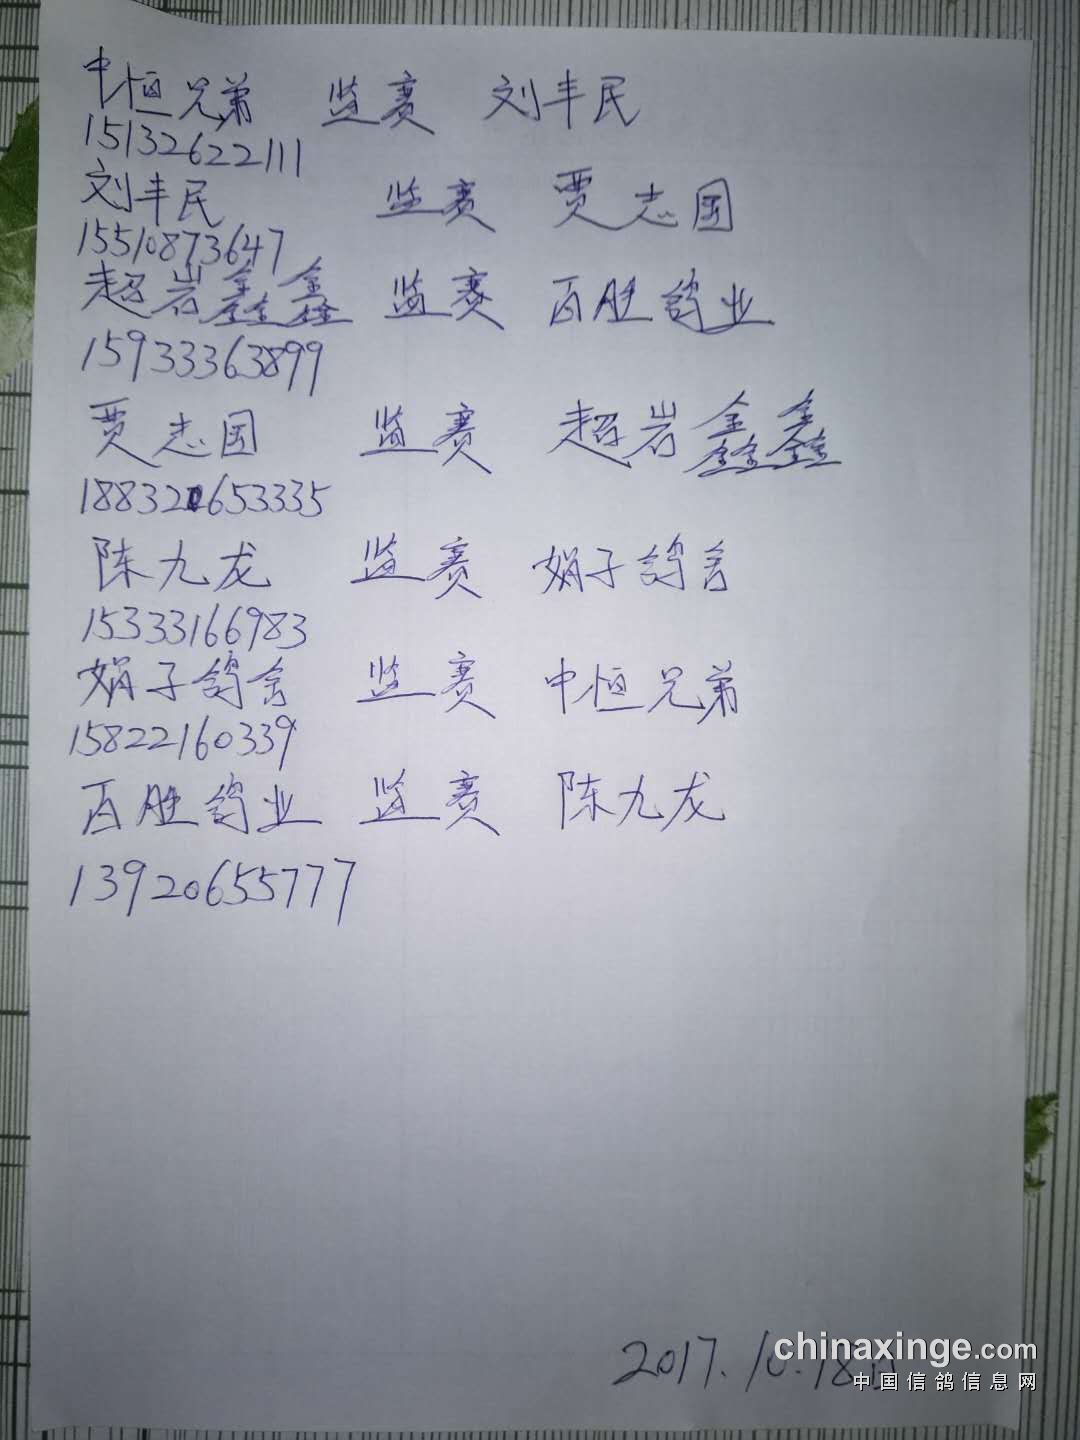 中恒兄弟 监赛 刘丰民
15132622111
刘丰民 监赛 贾志国
15510873647
超岩鑫鑫 监赛 百胜鸽业
15933363899
贾志国 监赛 超岩鑫鑫
18832653335
陈九龙 监赛 娟子鸽舍
15333166983
娟子鸽舍 监赛 中恒兄弟
15822160339
百胜鸽业 监赛 陈九龙
13920655777
2017.10.18日
chinaxinge.com
中国信鸽信息网